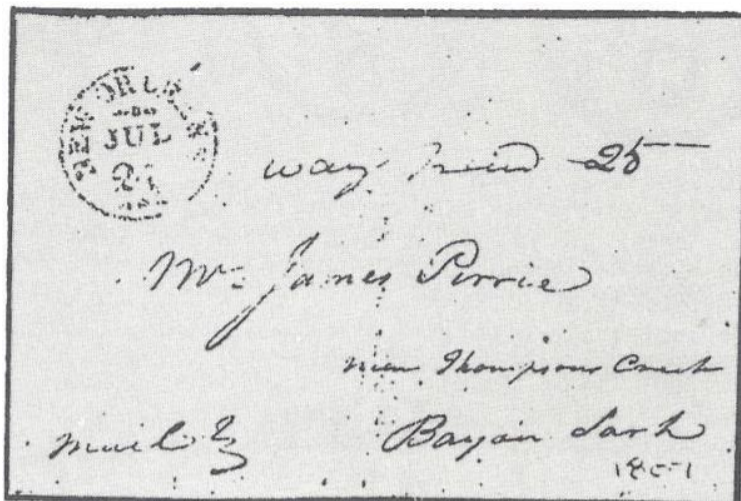 NEW ORLEANS
JUL
way paid 25
Mr. James Pirrie
near Thompsons Creek
Bayou Sarh
Mail